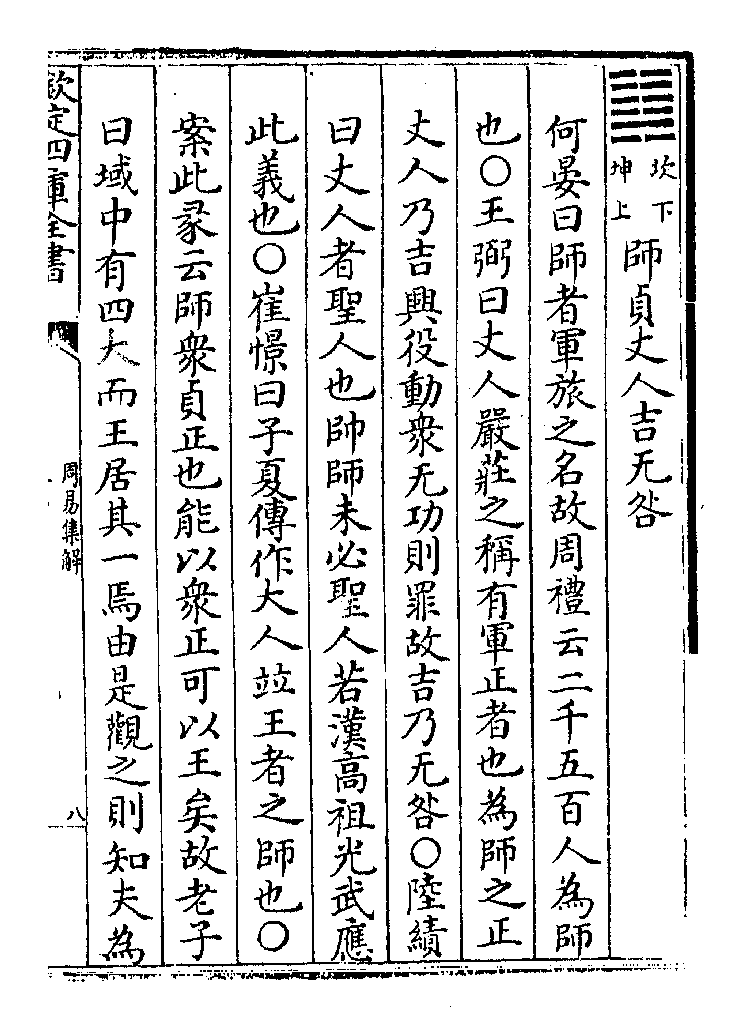 坎下
坤上
師貞丈人吉无咎
何晏曰師者軍旅之名故周禮云二千五百人為師
也○王弼曰丈人嚴莊之稱有軍正者也為師之正
丈人乃吉興役動衆无功則罪故吉乃无咎○陸績
曰丈人者聖人也帥師未必聖人若漢高祖光武應
此義也○崔憬曰子夏傳作大人竝王者之師也○
案此彖云師衆貞正也能以衆正可以王矣故老子
曰域中有四大而王居其一焉由是觀之則知夫為
欽定四庫全書
周易集解
八